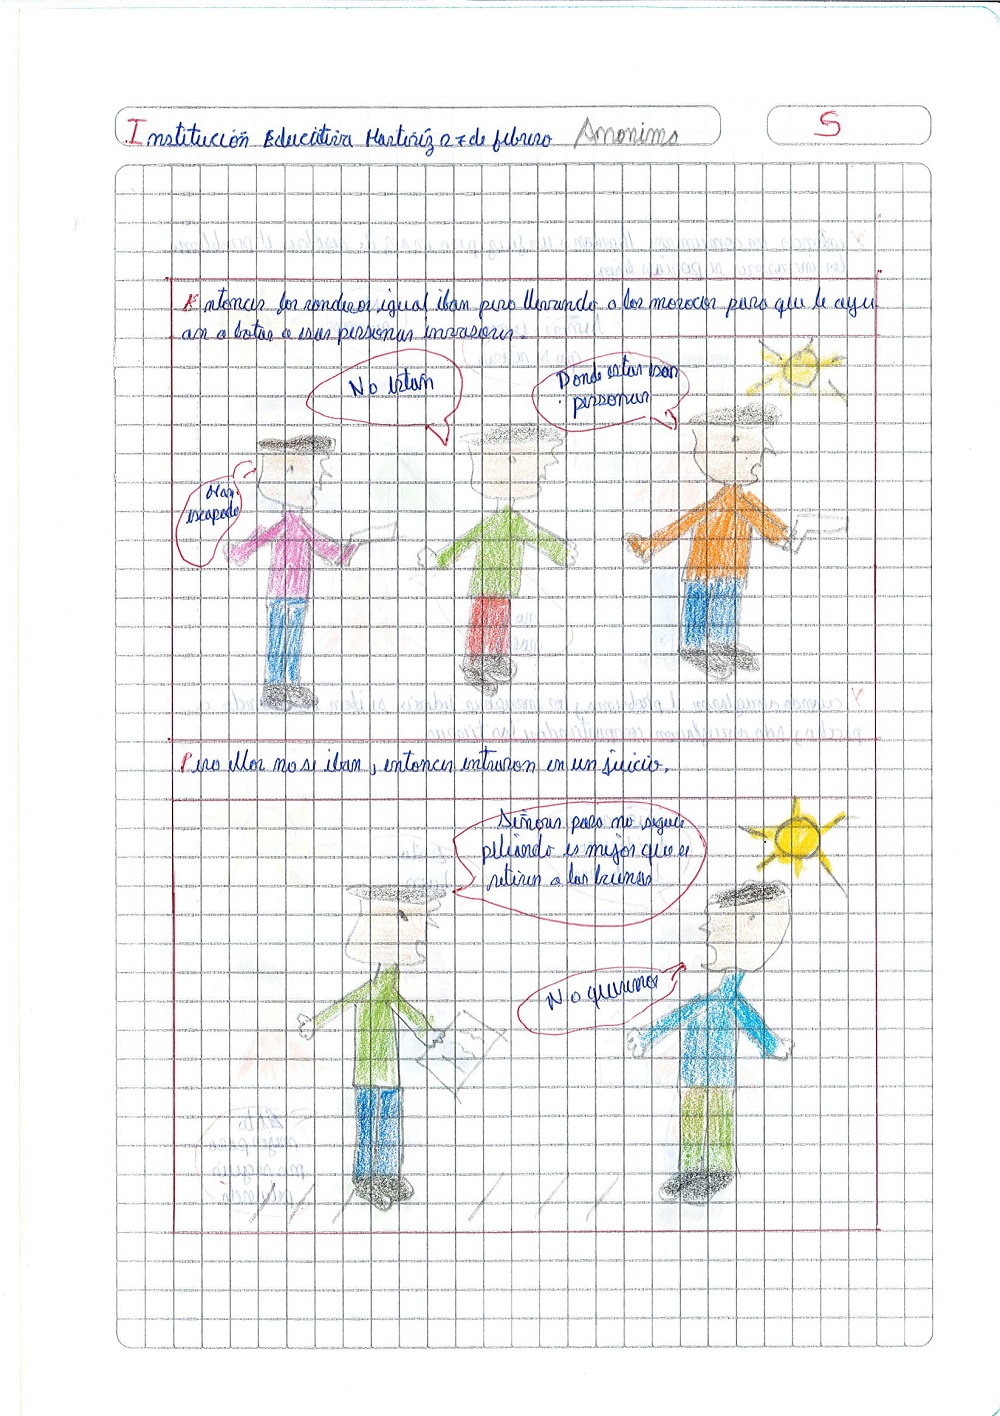 Institución Educativa Hartiriz 27 de febrero Anonimo
5
Entonces los ronderos igual iban pero llevando a los morocos para que le ayu
an a botar a esas personas invasores.
No están
Donde estas esan
personas
Han
escapado
Pero ellos no si iban, entonces entraron en un juicio.
Señores para no seguir
pelliando es mejor que se
retiren a las buenas
No queremos